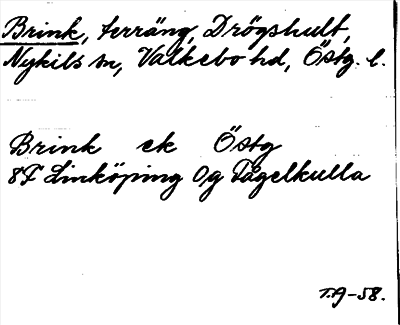 Brink, terräng, Drögshult,
Nykils sn, Valkebo hd, Östg. l.
Brink ek Östg
8F Linköping 0g Fågelkulla
T.G-58.